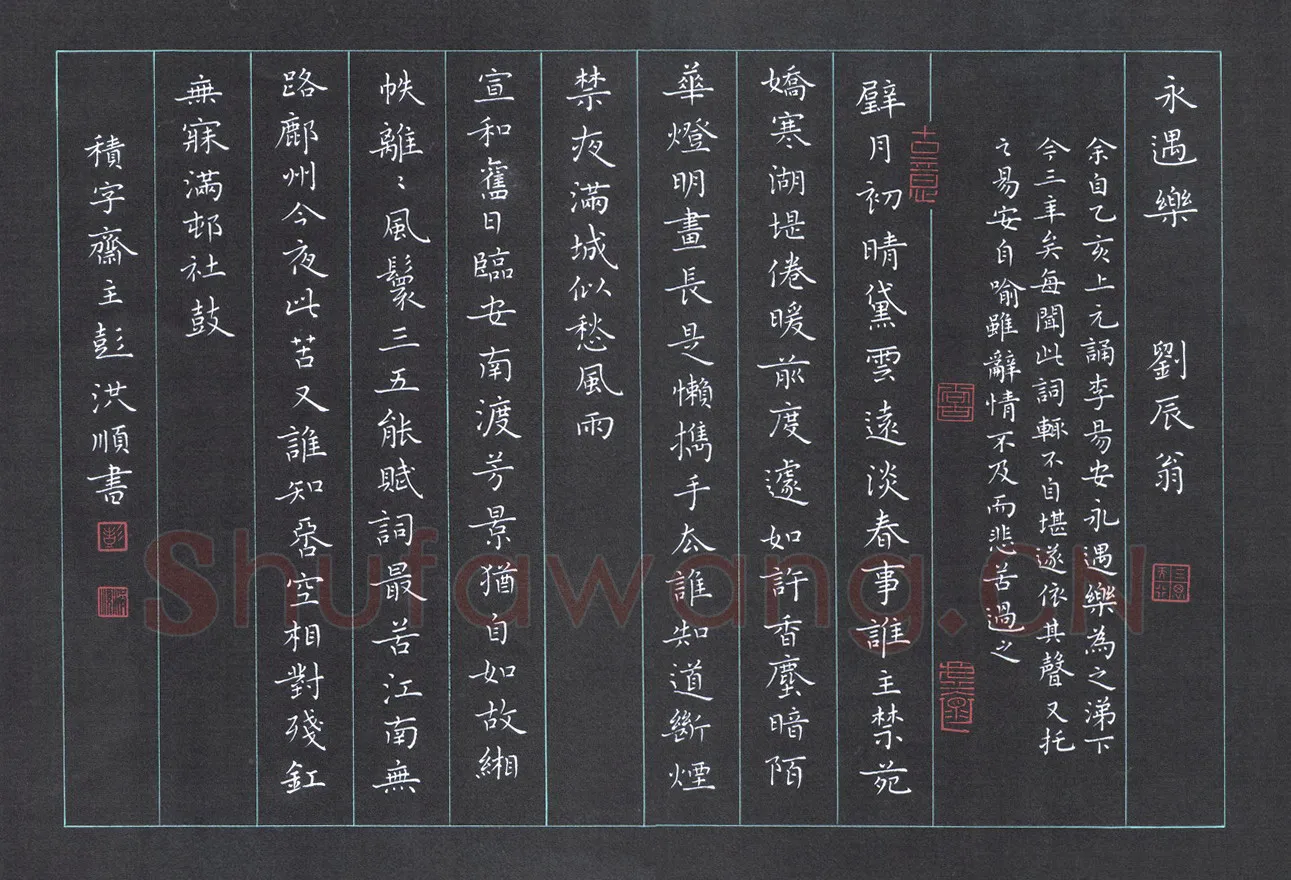 永遇樂 劉辰翁
余自乙亥上元誦李易安永遇樂為之涕下
今三年矣每聞此詞輒不自堪遂依其聲又托
之易安自喻雖辭情不及而悲苦過之
璧月初晴黛雲遠淡春事誰主禁苑
嬌寒湖堤倦暖前度遽如許香塵暗陌
華燈明晝長是懶攜手去誰知道斷煙
禁夜滿城似愁風雨
宣和舊日臨安南渡芳景猶自如故緗
帙離〻風鬟三五能賦詞最苦江南無
路鄜州今夜此苦又誰知否空相對殘釭
無寐滿邨社鼓
積字齋主彭洪順書
古意
彭
Shufawang.CN